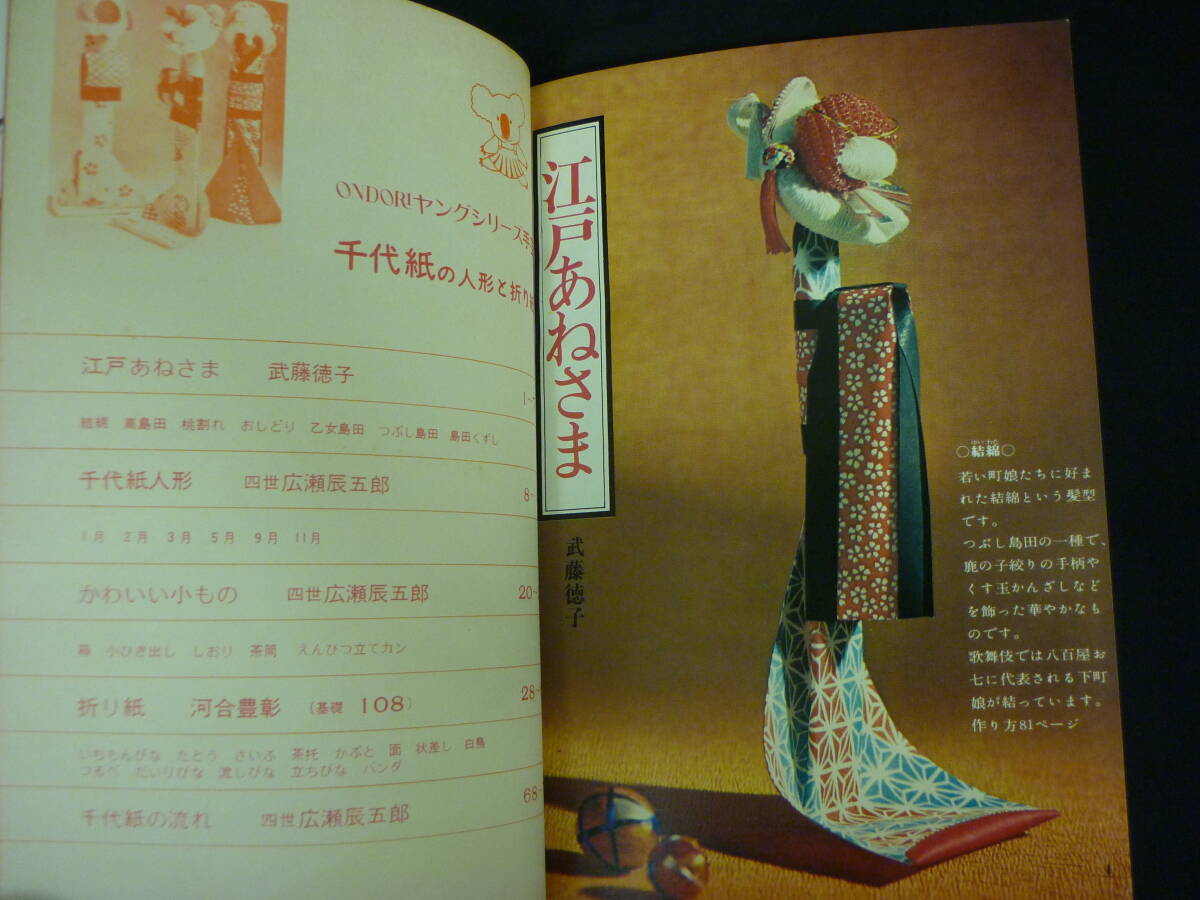 ONDORIヤングシリーズ手
千代紙の人形と折り
江戸あねさま 武藤徳子
1~
結綿 高島田 桃割れ おしどり 乙女島田 つぶし島田 島田くずし
千代紙人形 四世広瀬辰五郎
8~
1月 2月 3月 5月 9月 11月
かわいい小もの 四世広瀬辰五郎
20~
箱 小ひき出し しおり 茶筒 えんぴつ立てカン
折り紙 河合豊彰 (基礎 108)
28~
いちもんびな たとう さいふ 茶托 かぶと 面 状差し 白鳥
つるべ だいりびな 流しびな 立ちびな パンダ
68~
千代紙の流れ 四世広瀬辰五郎
江戸あねさま
武藤徳子
ゆいわた
○結綿○
若い町娘たちに好ま
れた結綿という髪型
です。
つぶし島田の一種で、
鹿の子絞りの手柄や
くす玉かんざしなど
を飾った華やかなも
のです。
歌舞伎では八百屋お
七に代表される下町
娘が結っています。
作り方81ページ
1